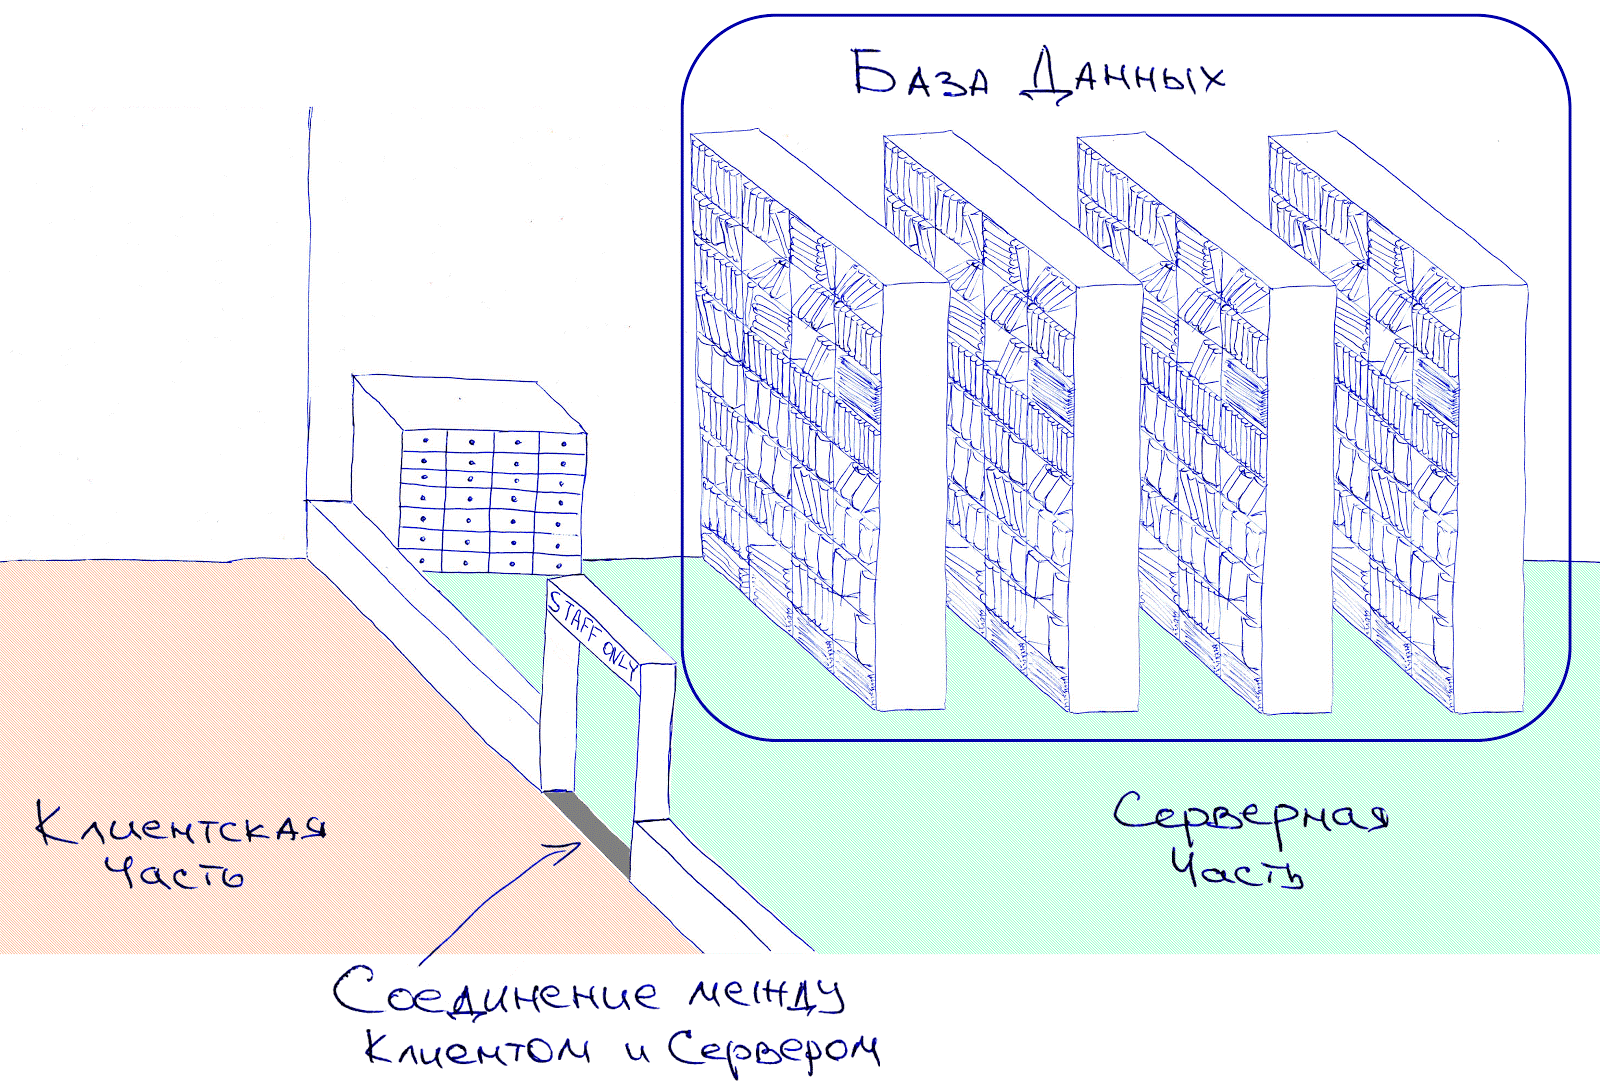 База Данных
STAFF ONLY
Клиентская
Часть
Серверная
Часть
Соединение между
Клиентом и Сервером